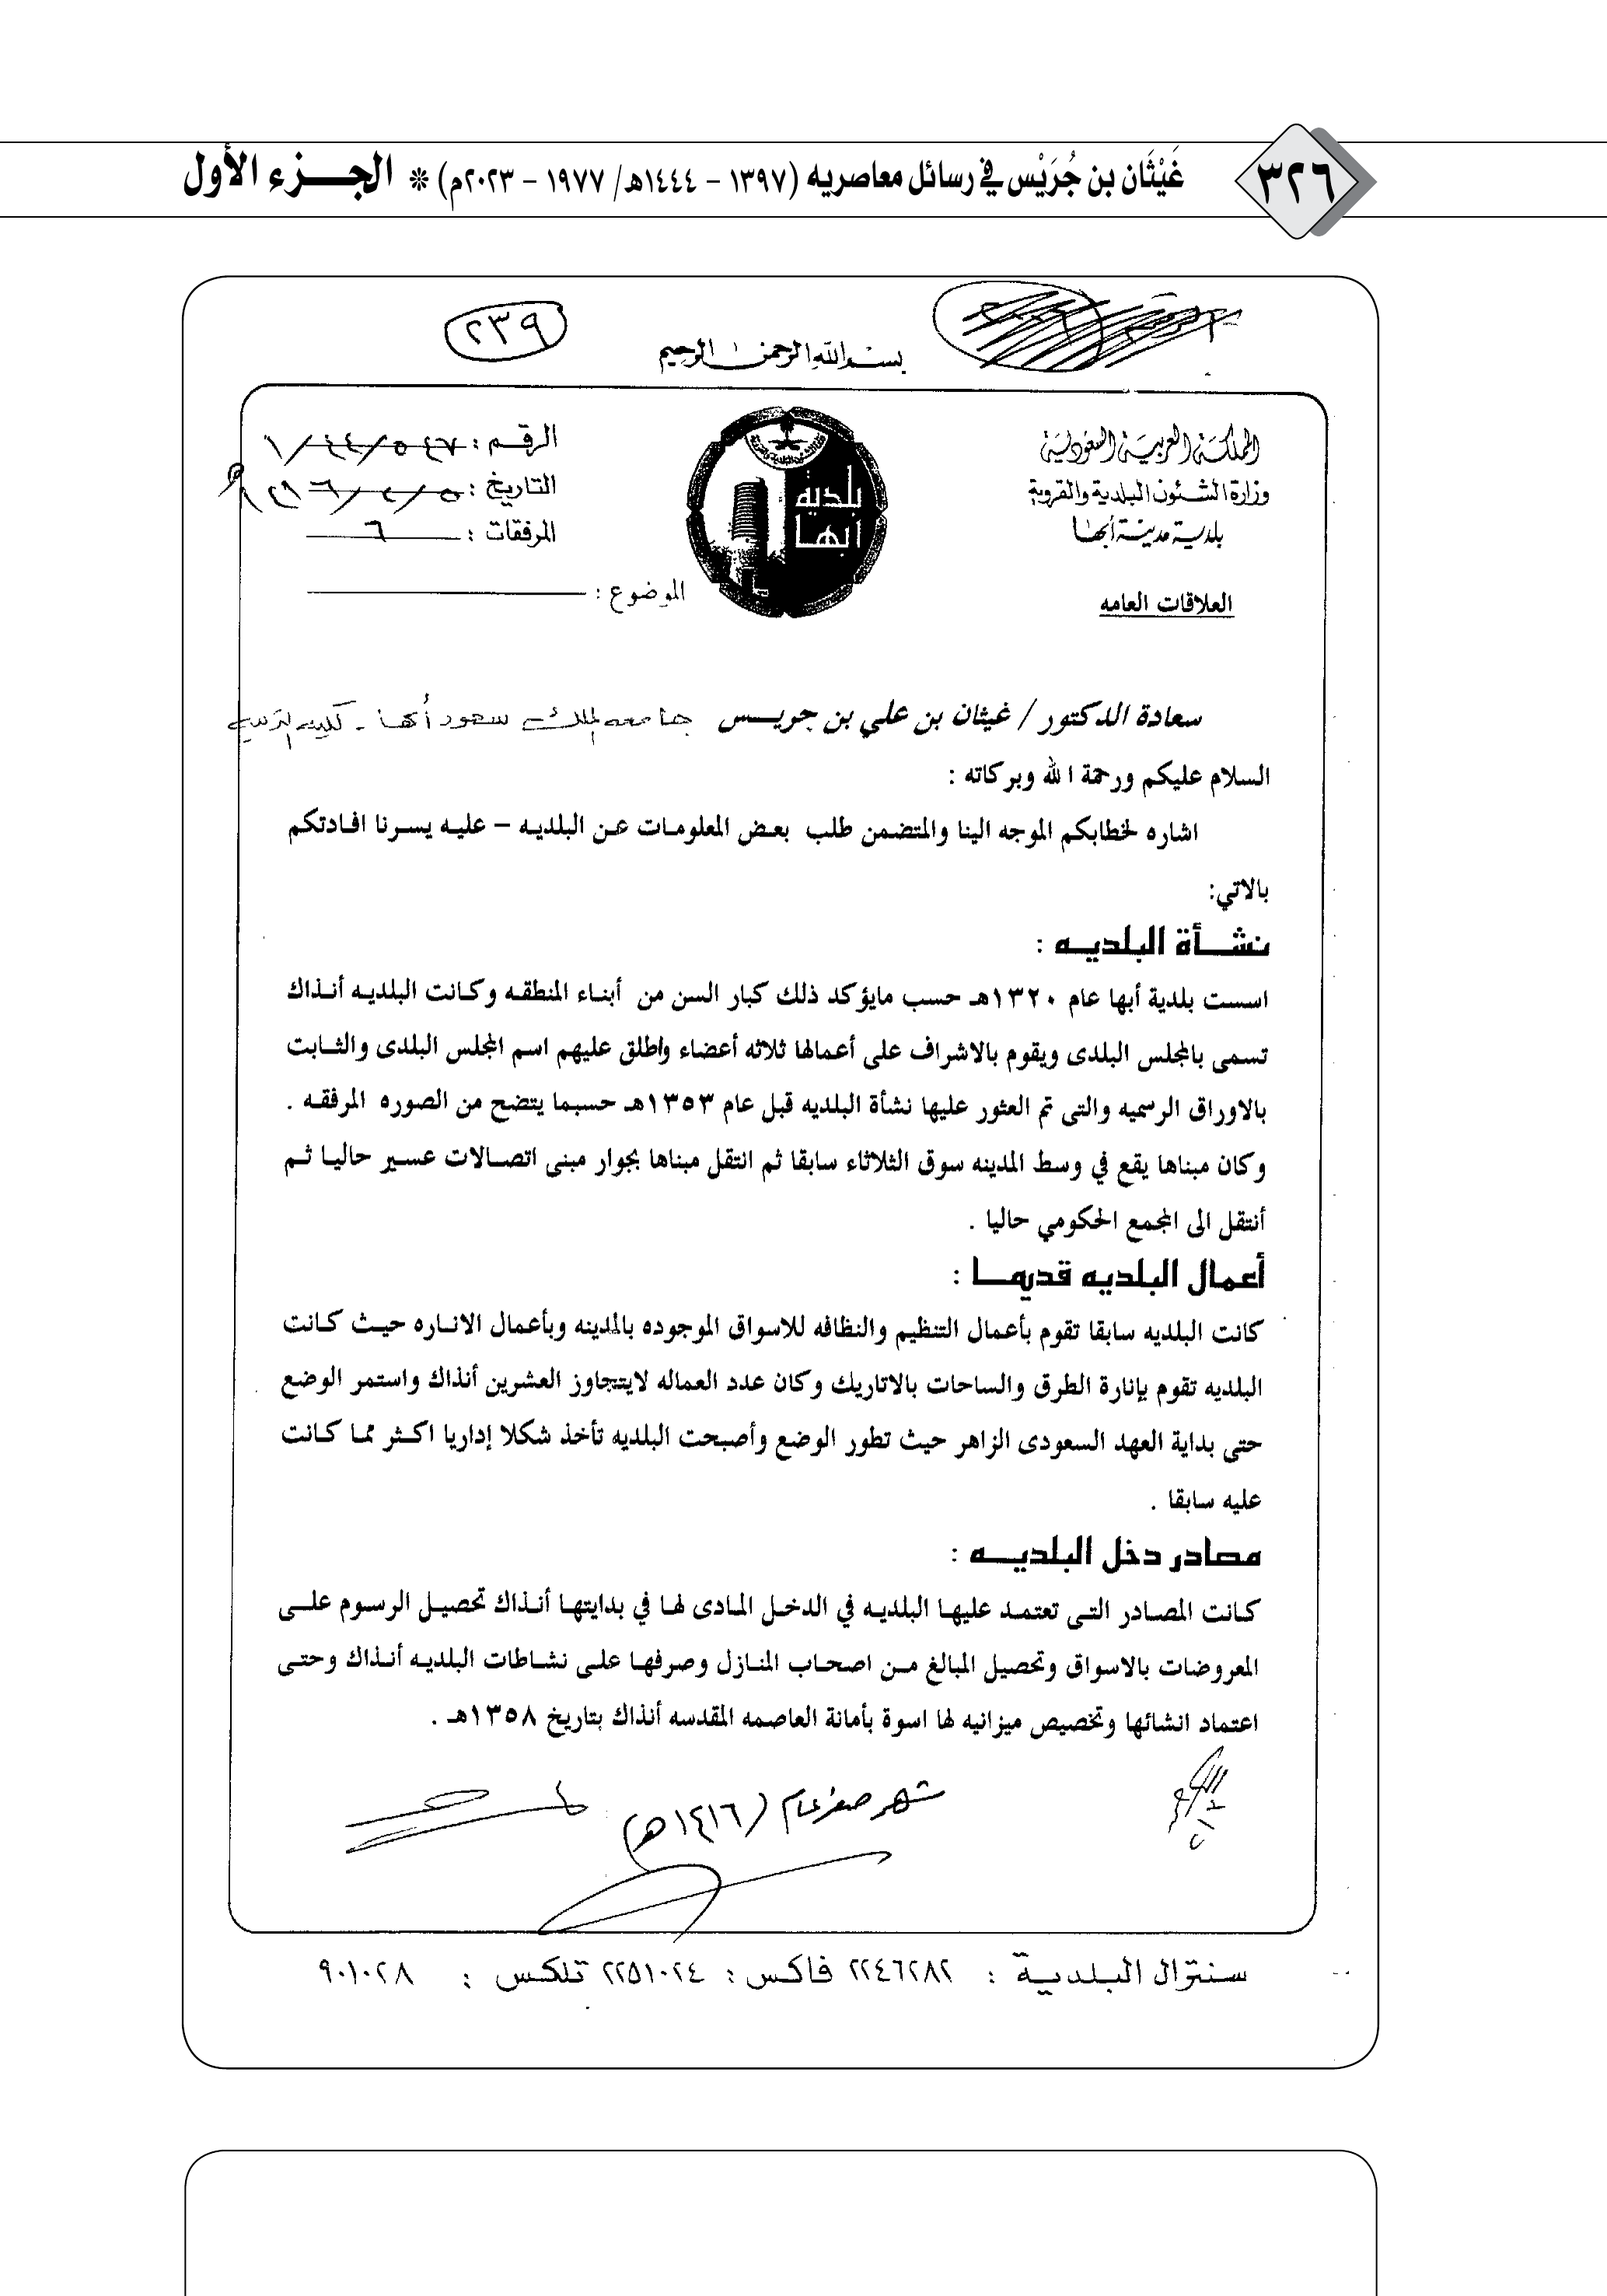 ٣٢٦
غَيْثَان بن جُرَيْس في رسائل معاصريه (١٣٩٧ - ١٤٤٤هـ/ ١٩٧٧ - ٢٠٢٣م) * الجـــزء الأول
٢٣٩
بسم الله الرحمن الرحيم
المملكة العربية السعودية
وزارة الشئون البلدية والقروية
بلدية مدينة أبها
العلاقات العامه
بلدية
ابها
الرقم : ١/٤٤/٥٤٧
التاريخ :
المرفقات : ٦
الموضوع :
سعادة الدكتور / غيثان بن علي بن جريس جامعه الملك سعود أبها - كلية التربية
السلام عليكم ورحمة الله وبركاته :
اشاره لخطابكم الموجه الينا والمتضمن طلب بعض المعلومات عن البلديه – عليه يسرنا افادتكم
بالاتي:
نشأة البلديه :
اسست بلدية أبها عام ١٣٢٠هـ حسب مايؤكد ذلك كبار السن من أبناء المنطقه وكانت البلديه أنذاك
تسمى بالمجلس البلدى ويقوم بالاشراف على أعمالها ثلاثه أعضاء واطلق عليهم اسم المجلس البلدى والثابت
بالاوراق الرسميه والتى تم العثور عليها نشأة البلديه قبل عام ١٣٥٣هـ حسبما يتضح من الصوره المرفقه .
وكان مبناها يقع في وسط المدينه سوق الثلاثاء سابقا ثم انتقل مبناها بجوار مبنى اتصالات عسير حاليا ثم
أنتقل الى المجمع الحكومي حاليا .
أعمال البلديه قديما :
كانت البلديه سابقا تقوم بأعمال التنظيم والنظافه للاسواق الموجوده بالمدينه وبأعمال الاناره حيث كانت
البلديه تقوم بإنارة الطرق والساحات بالاتاريك وكان عدد العماله لايتجاوز العشرين أنذاك واستمر الوضع
حتى بداية العهد السعودى الزاهر حيث تطور الوضع وأصبحت البلديه تأخذ شكلا إداريا اكثر مما كانت
عليه سابقا .
مصادر دخل البلديه :
كانت المصادر التى تعتمد عليها البلديه في الدخل المادى لها في بدايتها أنذاك تحصيل الرسوم على
المعروضات بالاسواق وتحصيل المبالغ من اصحاب المنازل وصرفها على نشاطات البلديه أنذاك وحتى
اعتماد انشائها وتخصيص ميزانيه لها اسوة بأمانة العاصمه المقدسه أنذاك بتاريخ ١٣٥٨هـ .
شهر صفر عام (١٤١٦هـ)
سنترال البلدية : ٢٢٤٦٢٨٢ فاكس : ٢٢٥١٠٢٤ تلكس : ٩٠١٠٢٨